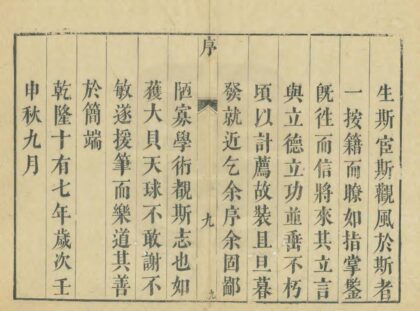 生斯宦斯觀風於斯者
一按籍而瞭如指掌鑒
旣徃而信將來其立言
與立德立功並垂不朽
頃以計薦故裝且旦暮
發就近乞余序余固鄙
序 九
陋寡學術覩斯志也如
獲大貝天球不敢謝不
敏遂援筆而樂道其善
於簡端
乾隆十有七年歲次壬
申秋九月
九